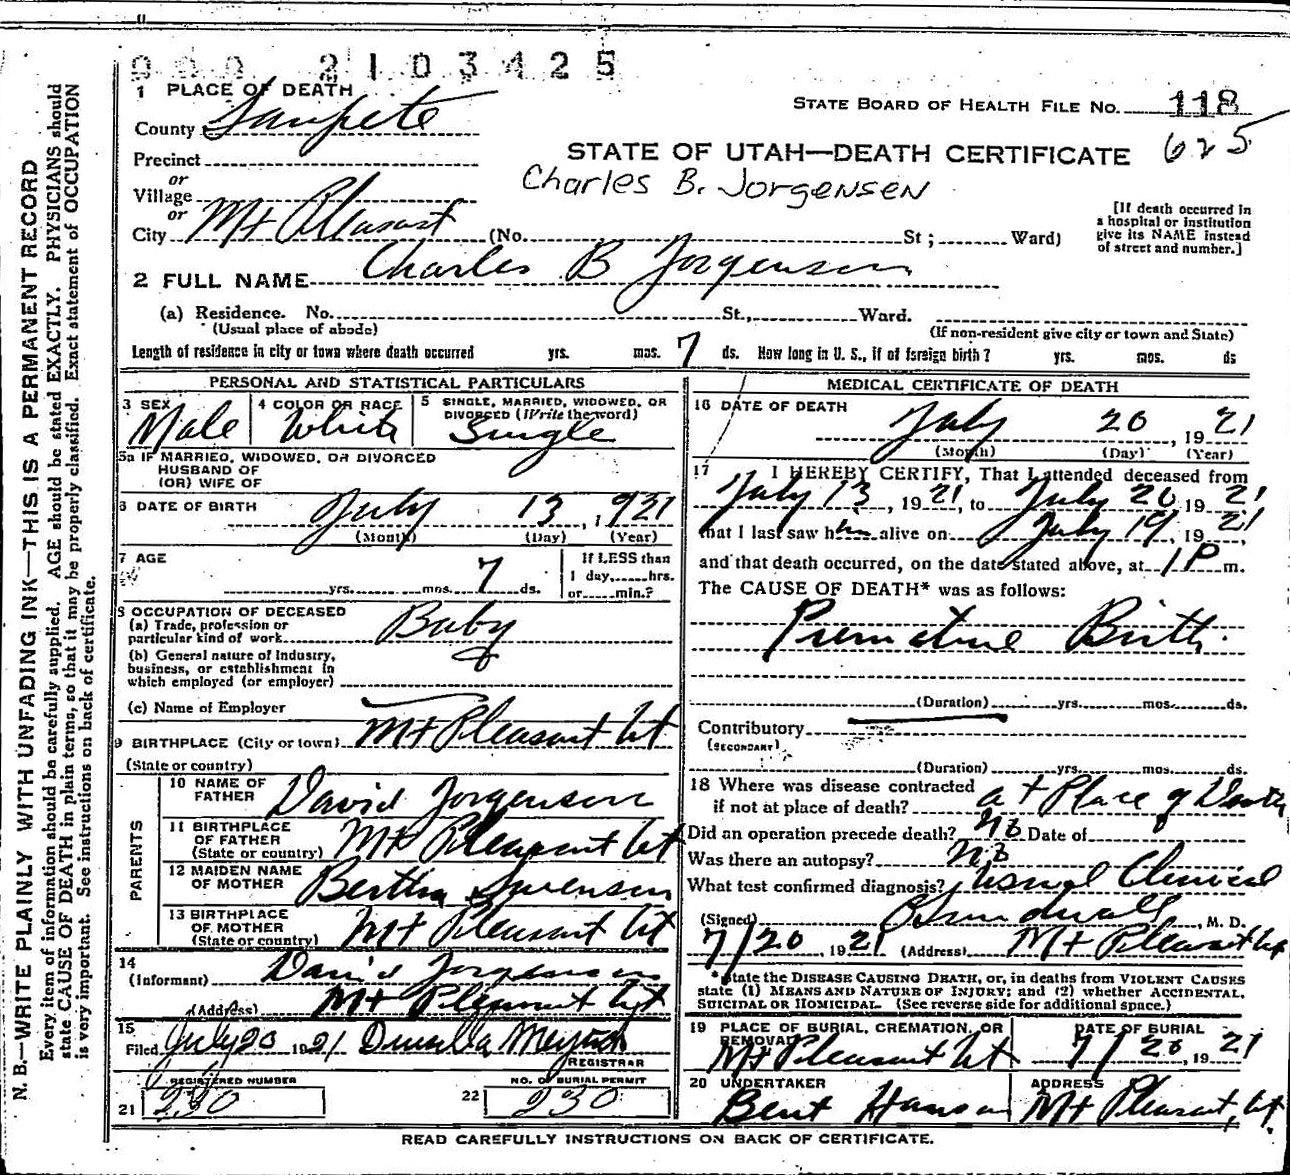 900 2103425
1 PLACE OF DEATH
STATE BOARD OF HEALTH FILE NO. 118
County Sanpete
625
Precinct
STATE OF UTAH—DEATH CERTIFICATE
or
Charles B. Jorgensen
Village
or
City Mt Pleasant (No. St; Ward)
[If death occurred in
a hospital or institution
give its NAME instead
of street and number.]
2 FULL NAME Charles B Jorgensen
(a) Residence. No. St., Ward.
(Usual place of abode) (If non-resident give city or town and State)
Length of residence in city or town where death occurred yrs. mos. 7 ds. How long in U. S., if of foreign birth? yrs. mos. ds
PERSONAL AND STATISTICAL PARTICULARS
3 SEX 4 COLOR OR RACE 5 SINGLE, MARRIED, WIDOWED, OR
DIVORCED (Write the word)
Male White Single
5a IF MARRIED, WIDOWED, OR DIVORCED
HUSBAND OF
(OR) WIFE OF
6 DATE OF BIRTH July 13, 1921
(Month) (Day) (Year)
7 AGE If LESS than
1 day,......hrs.
yrs. mos. 7 ds. or......min.?
8 OCCUPATION OF DECEASED
(a) Trade, profession or
particular kind of work Baby
(b) General nature of Industry,
business, or establishment in
which employed (or employer)
(c) Name of Employer
9 BIRTHPLACE (City or town) Mt Pleasant Ut
(State or country)
PARENTS
10 NAME OF
FATHER David Jorgensen
11 BIRTHPLACE
OF FATHER
(State or country) Mt Pleasant Ut
12 MAIDEN NAME
OF MOTHER Bertha Sorensen
13 BIRTHPLACE
OF MOTHER
(State or country) Mt Pleasant Ut
14
(Informant) David Jorgensen
(Address) Mt Pleasant Ut
15
Filed July 20 1921 Drusilla
REGISTRAR
REGISTERED NUMBER NO. OF BURIAL PERMIT
21 230 22 230
MEDICAL CERTIFICATE OF DEATH
16 DATE OF DEATH
July 20, 1921
(Month) (Day) (Year)
17 I HEREBY CERTIFY, That I attended deceased from
July 13, 1921, to July 20, 1921
that I last saw him alive on July 19, 1921,
and that death occurred, on the date stated above, at 1 P m.
The CAUSE OF DEATH* was as follows:
Premature Birth.
(Duration) yrs. mos. ds.
Contributory
(SECONDARY)
(Duration) yrs. mos. ds.
18 Where was disease contracted
if not at place of death? at Place of Death
Did an operation precede death? No Date of
Was there an autopsy? No
What test confirmed diagnosis? Usual Clinical
(Signed) , M. D.
7/20, 1921 (Address) Mt Pleasant Ut
*State the DISEASE CAUSING DEATH, or, in deaths from VIOLENT CAUSES
state (1) MEANS AND NATURE OF INJURY; and (2) whether ACCIDENTAL,
SUICIDAL OR HOMICIDAL. (See reverse side for additional space.)
19 PLACE OF BURIAL, CREMATION, OR
REMOVAL DATE OF BURIAL
Mt Pleasant Ut 7/20, 1921
20 UNDERTAKER ADDRESS
Bent Hansen Mt Pleasant, Ut.
READ CAREFULLY INSTRUCTIONS ON BACK OF CERTIFICATE.
N. B.—WRITE PLAINLY WITH UNFADING INK—THIS IS A PERMANENT RECORD
Every item of information should be carefully supplied. AGE should be stated EXACTLY. PHYSICIANS should
state CAUSE OF DEATH in plain terms, so that it may be properly classified. Exact statement of OCCUPATION
is very important. See instructions on back of certificate.